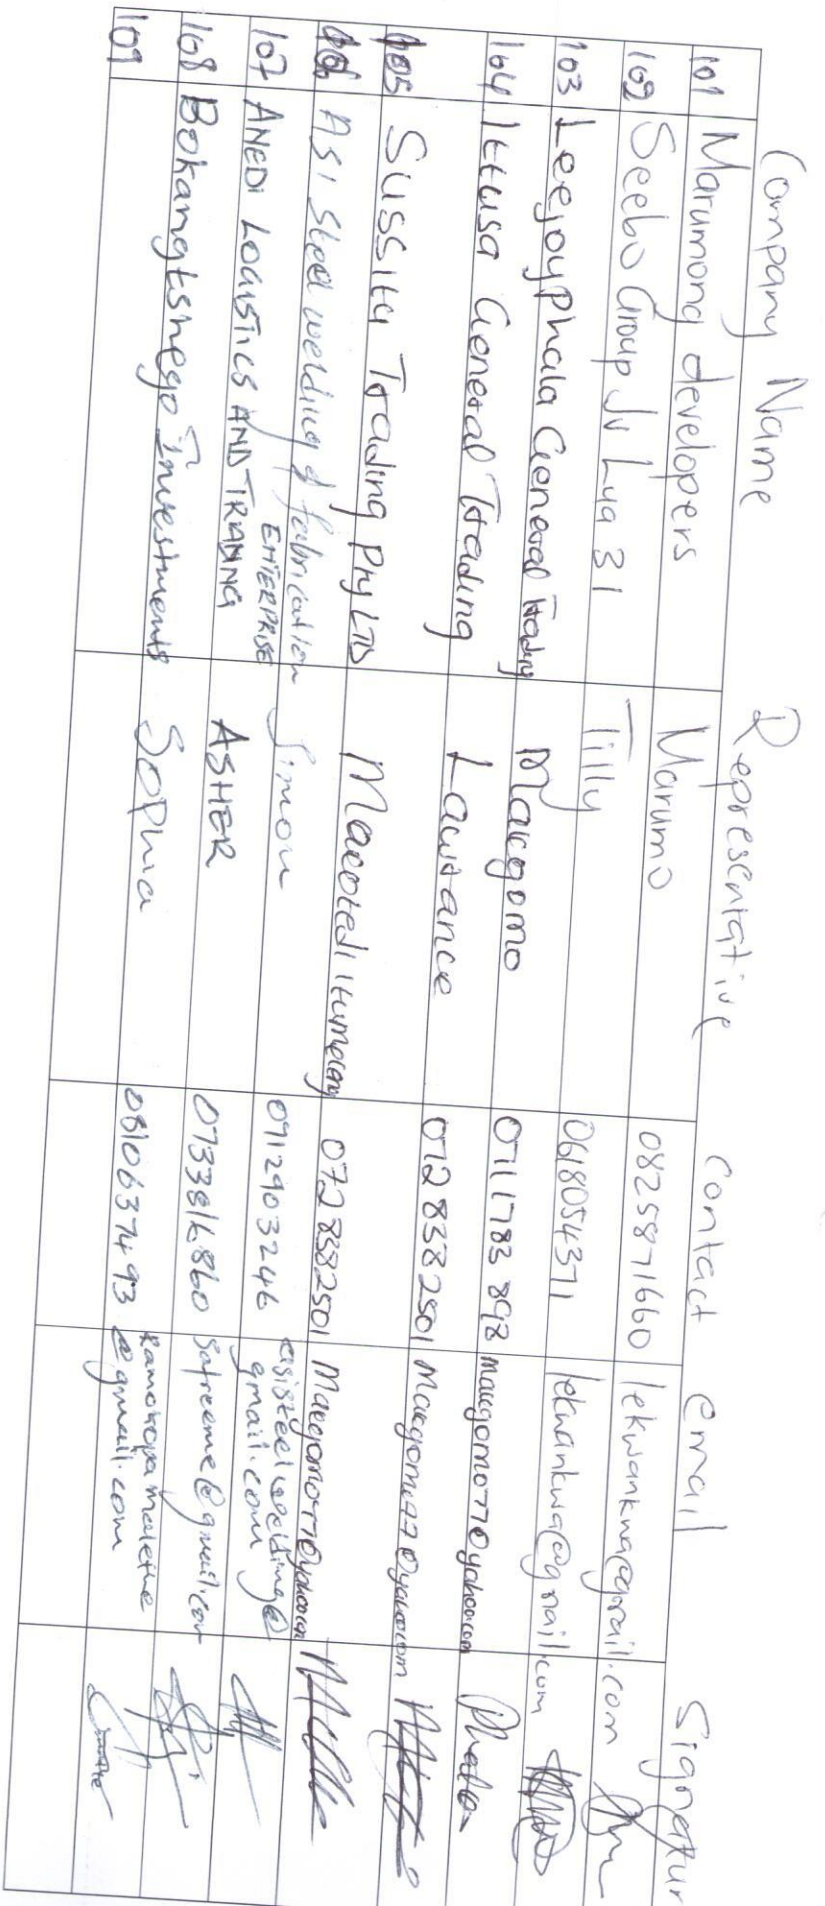 Company Name Representative Contact email Signatur
101 Marumong developers Marumo 0825871660 lekwankwa@gmail.com
102 Seebo Group Jv Lya 31 Tilly 0618054371 lekwankwa@gmail.com
103 Leejoyphala General Trading Makgomo 0711783 898 makgomo77@yahoo.com Phala
104 Ittusa General Trading Lawrance 072 8382501 Makgomo77@yahoo.com
105 Sussita Trading Pty LTD Itumeleng 072 8382501 Makgomo77@yahoo.com
106 ASI Steel welding & fabrication Simon 0712903246 asisteelwelding@
gmail.com
107 ANEDI LOGISTICS AND TRADING ENTERPRISE ASHER 0733816860
108 Bokangtshego Investments Sophia 0810637493
@gmail.com
109